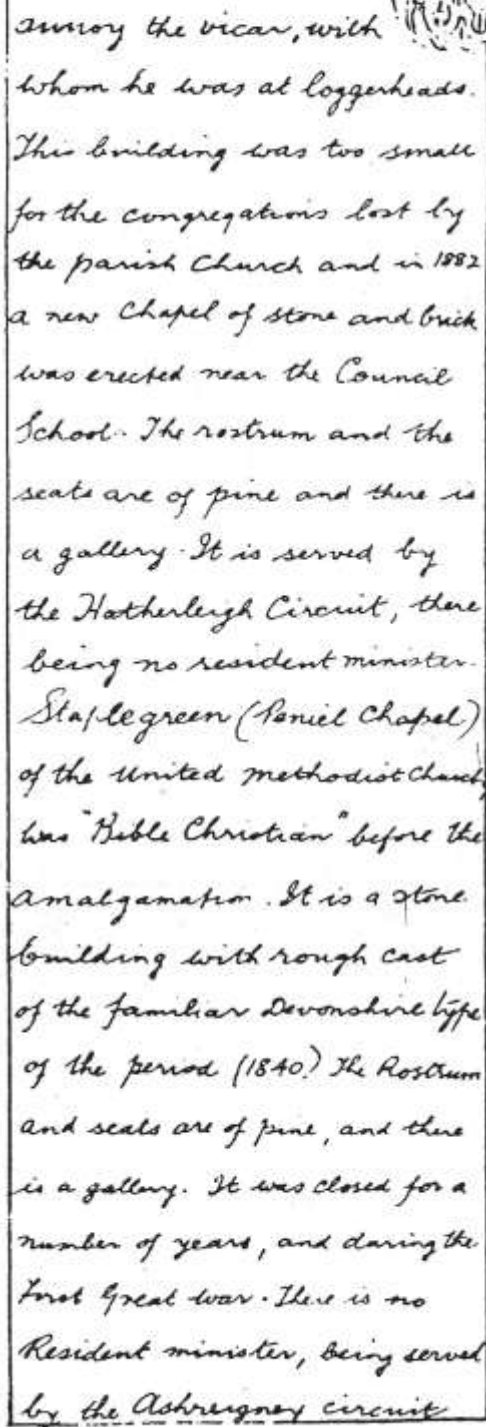 annoy the vicar, with
whom he was at loggerheads.
This building was too small
for the congregations lost by
the parish Church and in 1882
a new Chapel of stone and brick
was erected near the Council
School. The rostrum and the
seats are of pine and there is
a gallery. It is served by
the Hatherleigh Circuit, there
being no resident minister.
Staplegreen (Peniel Chapel)
of the United Methodist Church,
was "Bible Christian" before the
amalgamation. It is a stone
building with rough cast
of the familiar Devonshire type
of the period (1840?) The Rostrum
and seats are of pine, and there
is a gallery. It was closed for a
number of years, and during the
First Great war. There is no
Resident minister, being served
by the Ashreigney circuit